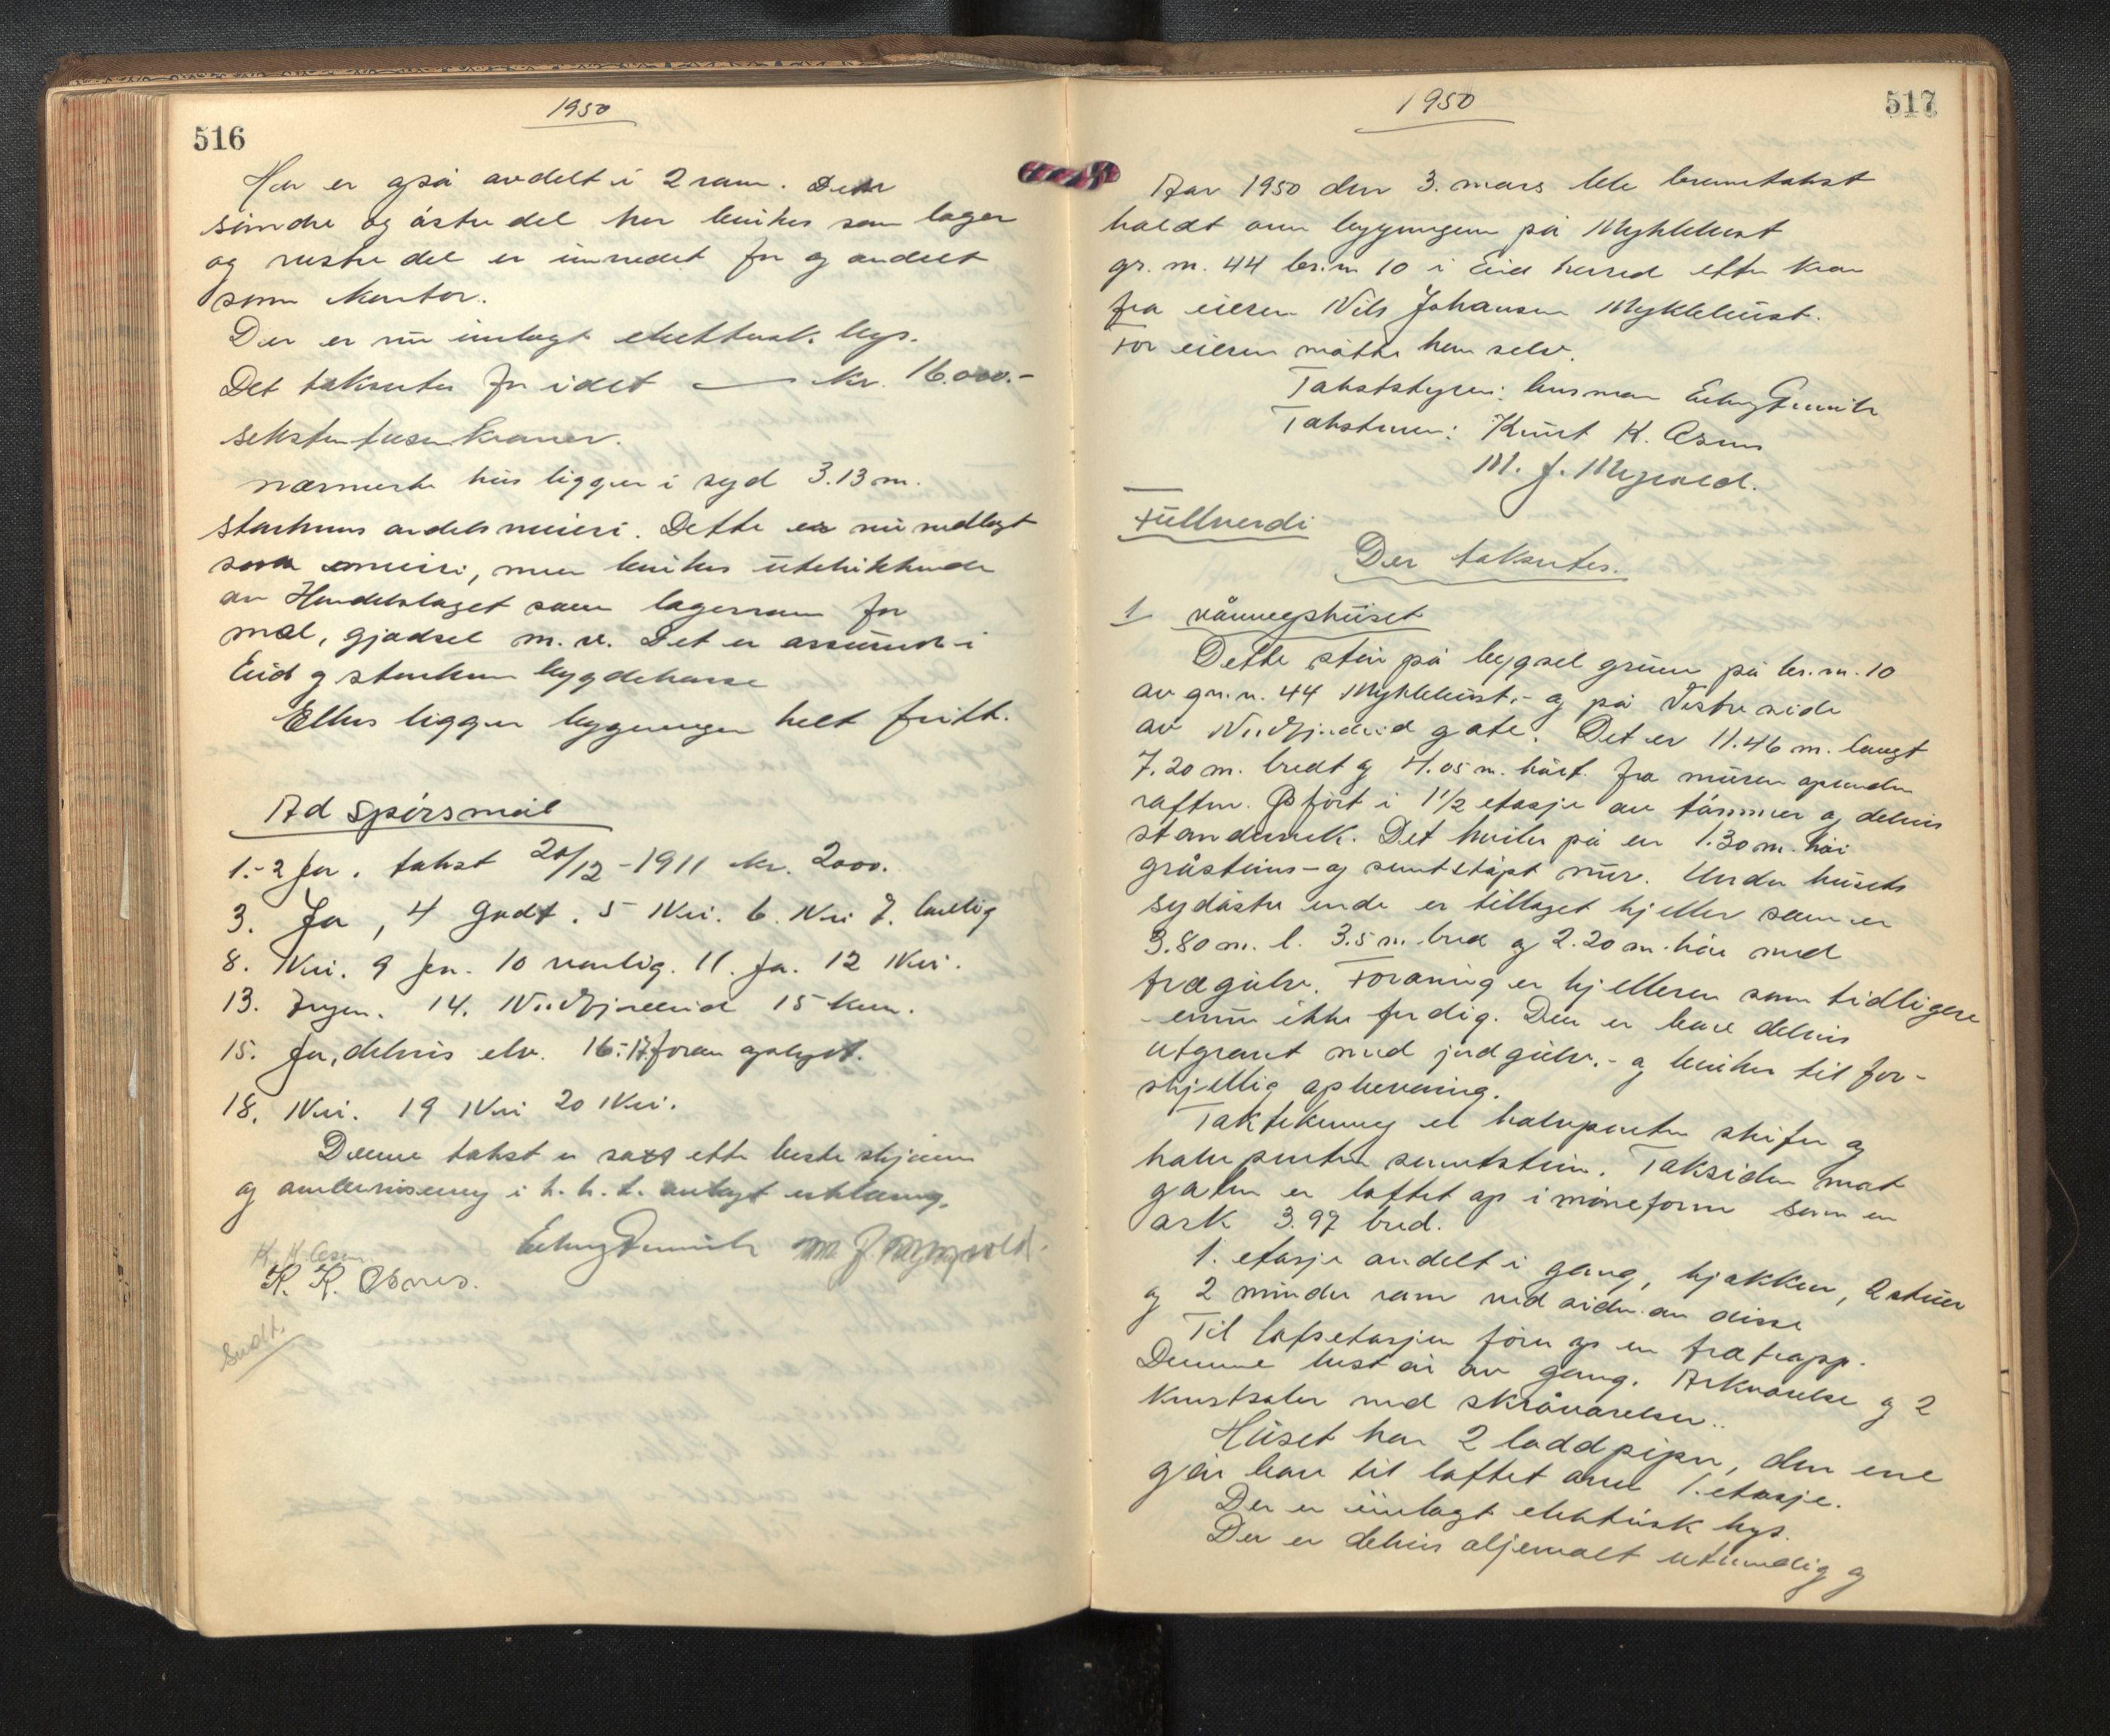 516
1950
Her er også avdelt i 2 rom. Den
søndre og østre del her brukes som lager
og vestre del er innredet for og avdelt
som kontor.
Der er nu innlagt elektrisk lys.
Det takseres for idet — kr. 16.000.-
seksten tusen kroner.
nærmeste hus ligger i syd 3.13 m.
Starheims andelsmeieri. Dette er nu nedlagt
som meieri, men brukes utelukkende
av Handelslaget som lagerrom for
mel, gjødsel m.v. Det er assurert i
Eid og Starheim bygdekasse
Ellers ligger bygningen helt fritt.
Ad spørsmål
1.-2 Ja. takst 20/12-1911 kr. 2000.
3. Ja, 4 Godt. 5 Nei. 6. Nei 7. lovlig
8. Nei. 9 Jen. 10 vanlig. 11. Ja. 12 Nei.
13. Ingen. 14. Nordfjordeid 15 km.
15. Ja, delvis elv. 16.-17. foran oplyst.
18. Nei. 19 Nei 20 Nei.
Denne takst er satt etter beste skjønn
og overbevisning i h. h. t. avlagt erklæring.
K. K. Osnes
K. K. Osnes.
M. J. Myrvold.
Sndt.
1950
517
Aar 1950 den 3. mars ble branntakst
holdt over bygningen på Myklebust
gr. nr. 44 br. nr 10 i Eid herred etter krav
fra eieren Nils Johansen Myklebust.
For eieren møtte han selv.
Takststyrer: lensman
Takstmenn: Knut K. Osnes
M. J. Myrvold.
Fullverdi
Der takseres.
1 våningshuset
Dette står på bygsel grunn på br. nr. 10
av gr. nr. 44 Myklebust,- og på Vestre side
av Nordfjordeid gate. Det er 11.46 m. langt
7.20 m. bredt og 4.05 m. høit fra muren op under
raften. Opført i 1 1/2 etasje av tømmer og delvis
standverk. Det hviler på en 1.30 m. høi
gråsteins- og sementstøpt mur. Under husets
sydøstre ende er tillaget kjeller som er
3.80 m. l. 3.5 m. bred og 2.20 m. høi med
tregulv. Forøvrig er kjelleren som tidligere
ennu ikke ferdig. Den er bare delvis
utgravt med jordgulv.- og brukes til for-
skjellig opbevaring.
Taktekning el halvparten skifer og
halvparten sementstein. Taksiden mot
gaten er løftet op i møneform som en
ark 3.97 bred.
1. etasje avdelt i gang, kjøkken, 2 stuer
og 2 mindre rom ved siden av disse
Til loftsetasjen fører op en tretrapp.
Denne består av gang. Arkværelse og 2
kvistsaler med skråværelser..
Huset har 2 loddpiper, den ene
går bare til loftet over 1. etasje.
Der er innlagt elektrisk lys.
Der er delvis oljemalt utvendig og